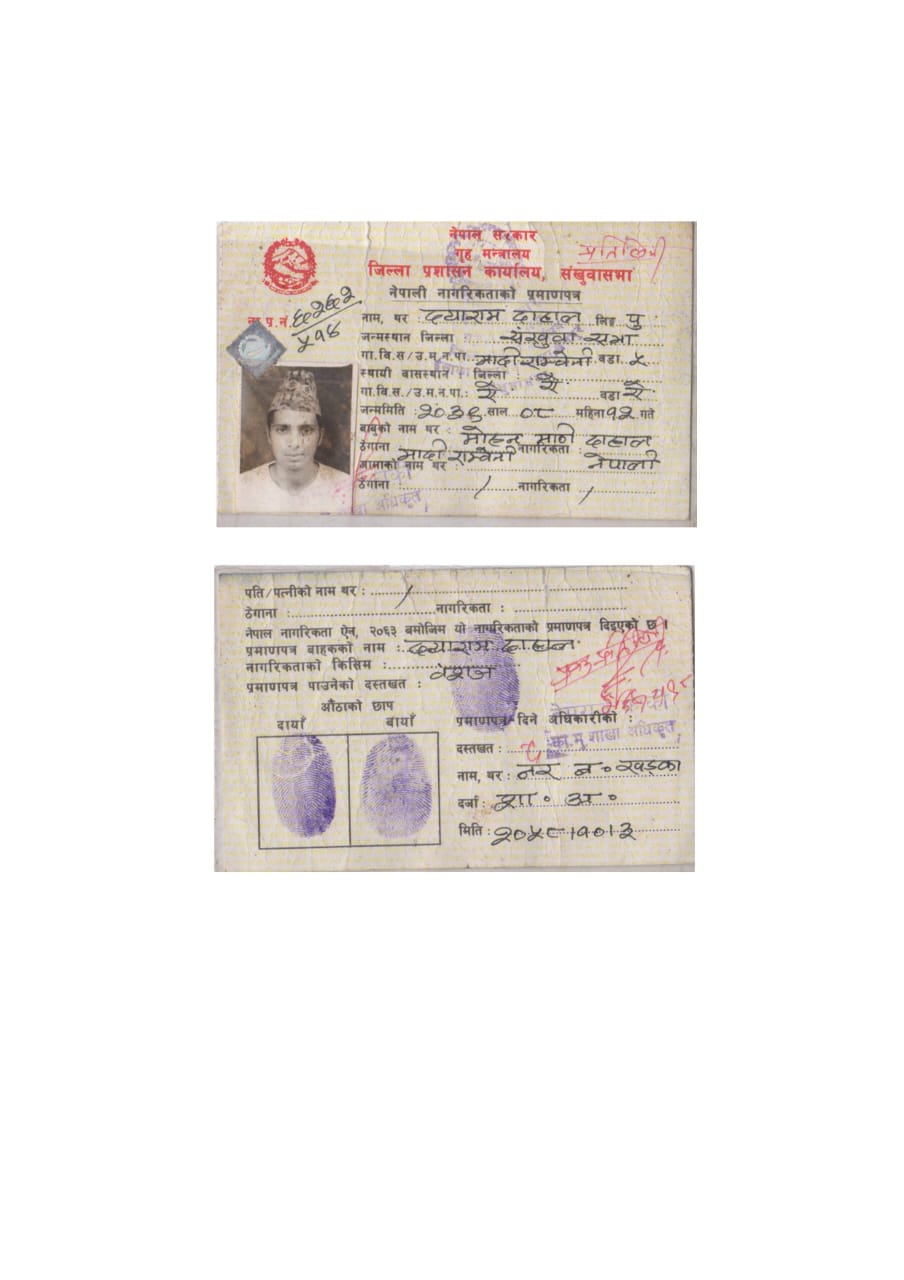 नेपाल सरकार
गृह मन्त्रालय
प्रतिलिपी
जिल्ला प्रशासन कार्यालय, संखुवासभा
नेपाली नागरिकताको प्रमाणपत्र
ना.प्र.नं.
नाम, थर : दयाराम दाहाल लिङ्ग पु
जन्मस्थान जिल्ला : संखुवा सभा
गा.वि.स/उ.म.न.पा. मादी राम्वेनी वडा ५
स्थायी बासस्थान : जिल्ला :
गा.वि.स./उ.म.न.पा.: ऐ वडा ऐ
जन्ममिति : २०३९ साल ०८ महिना १२ गते
बाबुको नाम थर : मोहन माठी दाहाल
ठेगाना मादी राम्वेनी नागरिकता : नेपाली
आमाको नाम थर :
ठेगाना : / नागरिकता /
पति/पत्नीको नाम थर : /
ठेगाना : नागरिकता :
नेपाल नागरिकता ऐन, २०६३ बमोजिम यो नागरिकताको प्रमाणपत्र दिइएको छ।
प्रमाणपत्र बाहकको नाम : दयाराम दाहाल
नागरिकताको किसिम : वंशज
प्रमाणपत्र पाउनेको दस्तखत :
औंठाको छाप
दायाँ बायाँ
प्रमाणपत्र दिने अधिकारीको :
का.मु शाखा अधिकृत
दस्तखत :
नाम, थर : नर ब॰ खड्का
दर्जा : शा॰ अ॰
मिति : २०५८।१०।३